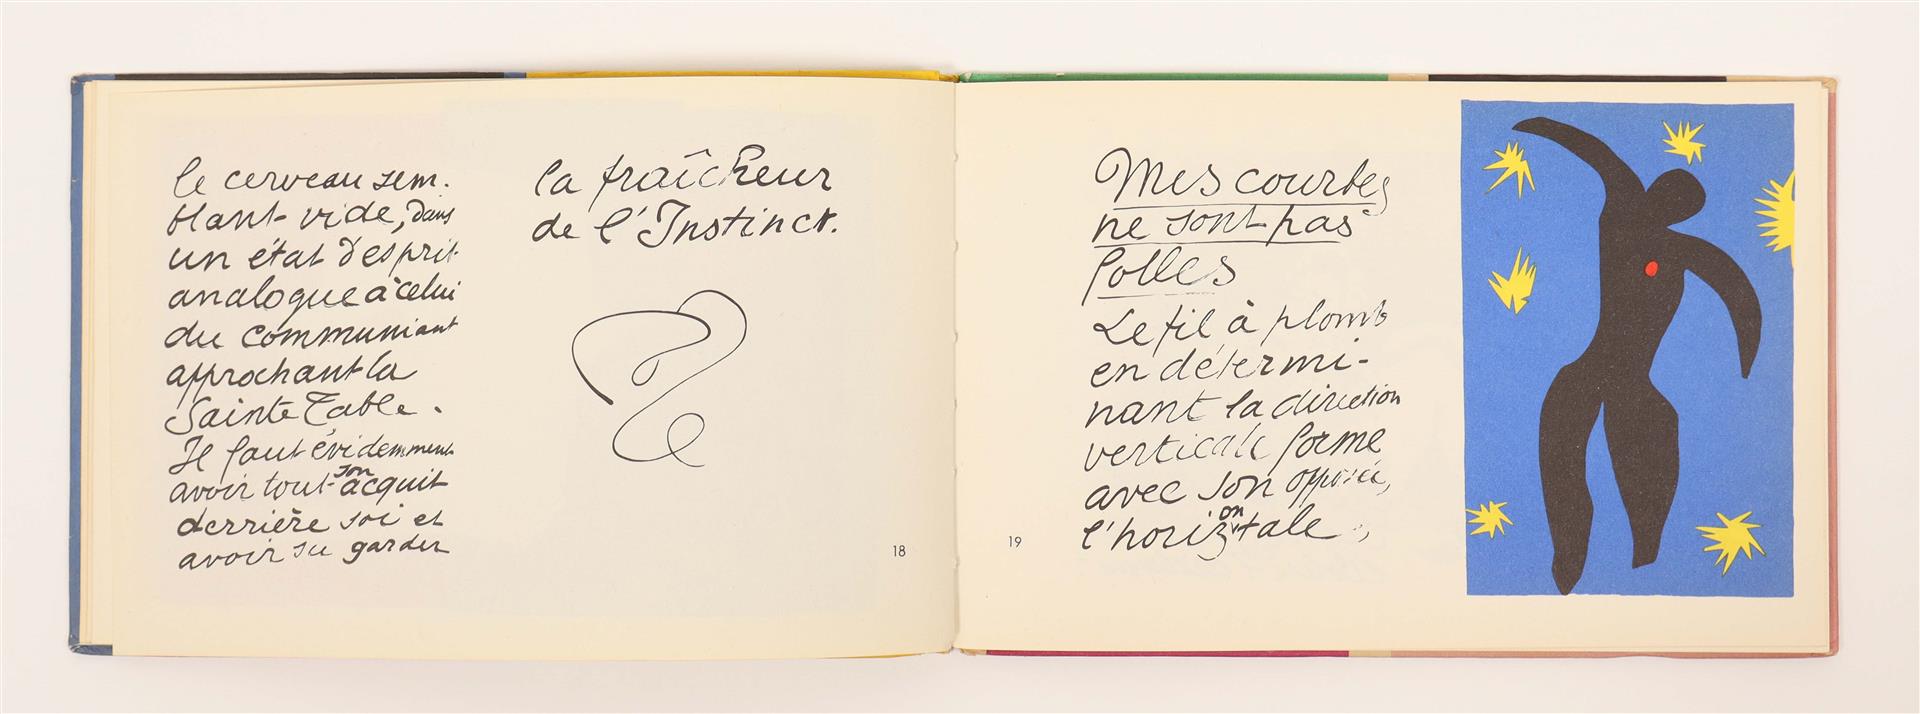 le cerveau sem-
blant vide, dans
un état d'esprit
analogue à celui
du communiant
approchant la
Sainte Table.
Il faut évidemment
avoir tout son acquit
derrière soi et
avoir su garder
la fraîcheur
de l'Instinct.
18
Mes courbes
ne sont pas
folles
Le fil à plomb
en détermi-
nant la direction
verticale forme
avec son opposée,
l'horizontale,
19